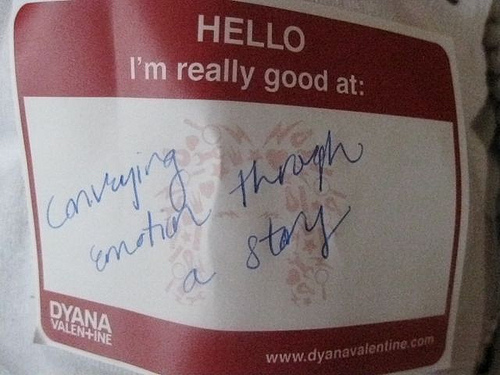 HELLO
I'm really good at:
Conveying
emotion through
a story
DYANA
VALEN+INE
www.dyanavalentine.com